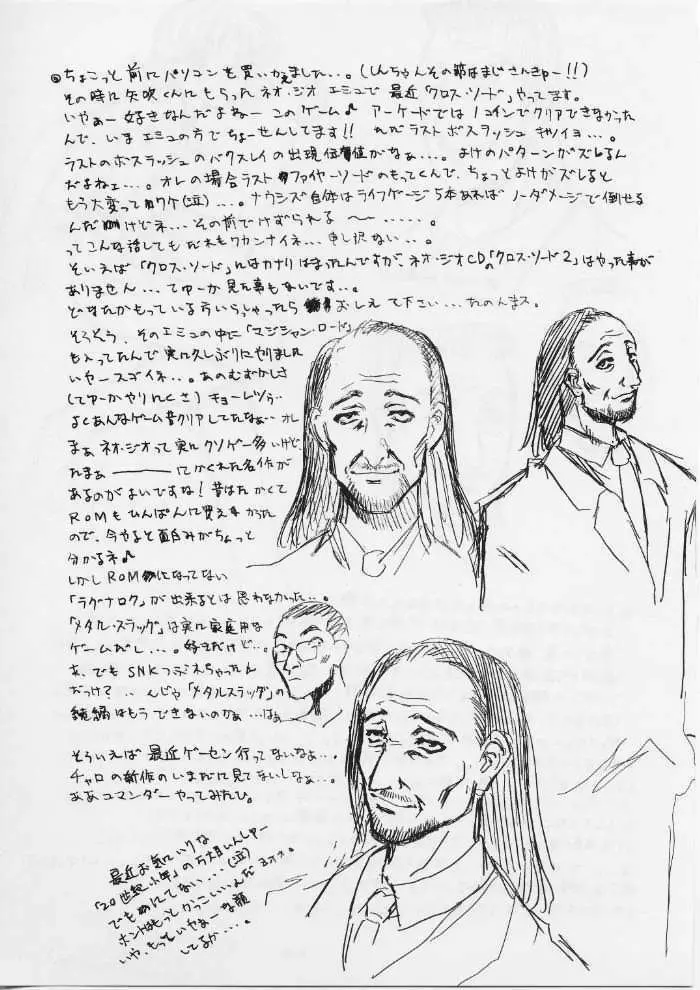 ◎ちょこっと前にパソコンを買いかえました…。(しんちゃんその節はまじさんきゅー!!)
その時に矢吹くんにもらったネオ・ジオエミュで最近「クロス・ソード」やってます。
いやぁー好きなんだよねーこのゲーム♪ アーケードでは1コインでクリアできなかった
んで、いまエミュの方でちょーせんしてます!! ただラストボスラッシュキツイヨ…。
ラストのボスラッシュのバクスレイの出現位置がなぁ…。よけのパターンがズレるん
だよねェ…。オレの場合ラストファイヤーソードのもってくんで、ちょっとよけがズレると
もう大変ってワケ(泣)…。ナウシズ自体はライフゲージ5本あればノーダメージで倒せる
んだけどネ…その前でけずられる〜……。
ってこんな話してもだれもワカンナイネ…申し訳ない…。
そいえば「クロス・ソード」にはカナリはまったんですが、ネオ・ジオCDの「クロス・ソード2」はやった事が
ありません…てゆーか見た事もないです…。
どなたかもっている方いらっしゃったらおしえて下さい…たのんまス。
そうそう、そのエミュの中に「マジシャン・ロード」
も入ってたんで実に久しぶりにやりました
いやースゴイネ…。あのむずかしさ
(てゆーかやりにくさ)キョーレツゥ…
よくあんなゲーム昔クリアしてたなぁ…オレ
まぁネオ・ジオって実にクソゲー多いけど
たまぁ――――にかくれた名作が
あるのがよいですね!昔はたかくて
ROMもひんぱんに買えなかった
ので、今やると面白みがちょっと
分かるネ♪
しかしROMになってない
「ラグナロク」が出来るとは思わなかった…。
「メタル・スラッグ」は実に家庭用な
ゲームだし…。好きだけど…。
あ、でもSNKつぶれちゃったん
だっけ?…んじゃ「メタルスラッグ」の
続編はもうできないのかぁ…はぁ
そういえば最近ゲーセン行ってないなぁ…。
チャロの新作のいまだに見てないしなぁ…。
ああコマンダーやってみたひ。
最近お気にいりな
「20世紀少年」の万丈目いんしゅー
でもにてない…(泣)
ホントはもっとかっこいいんだヨォォ。
いや、もっといやぁーな顔
してるか…。